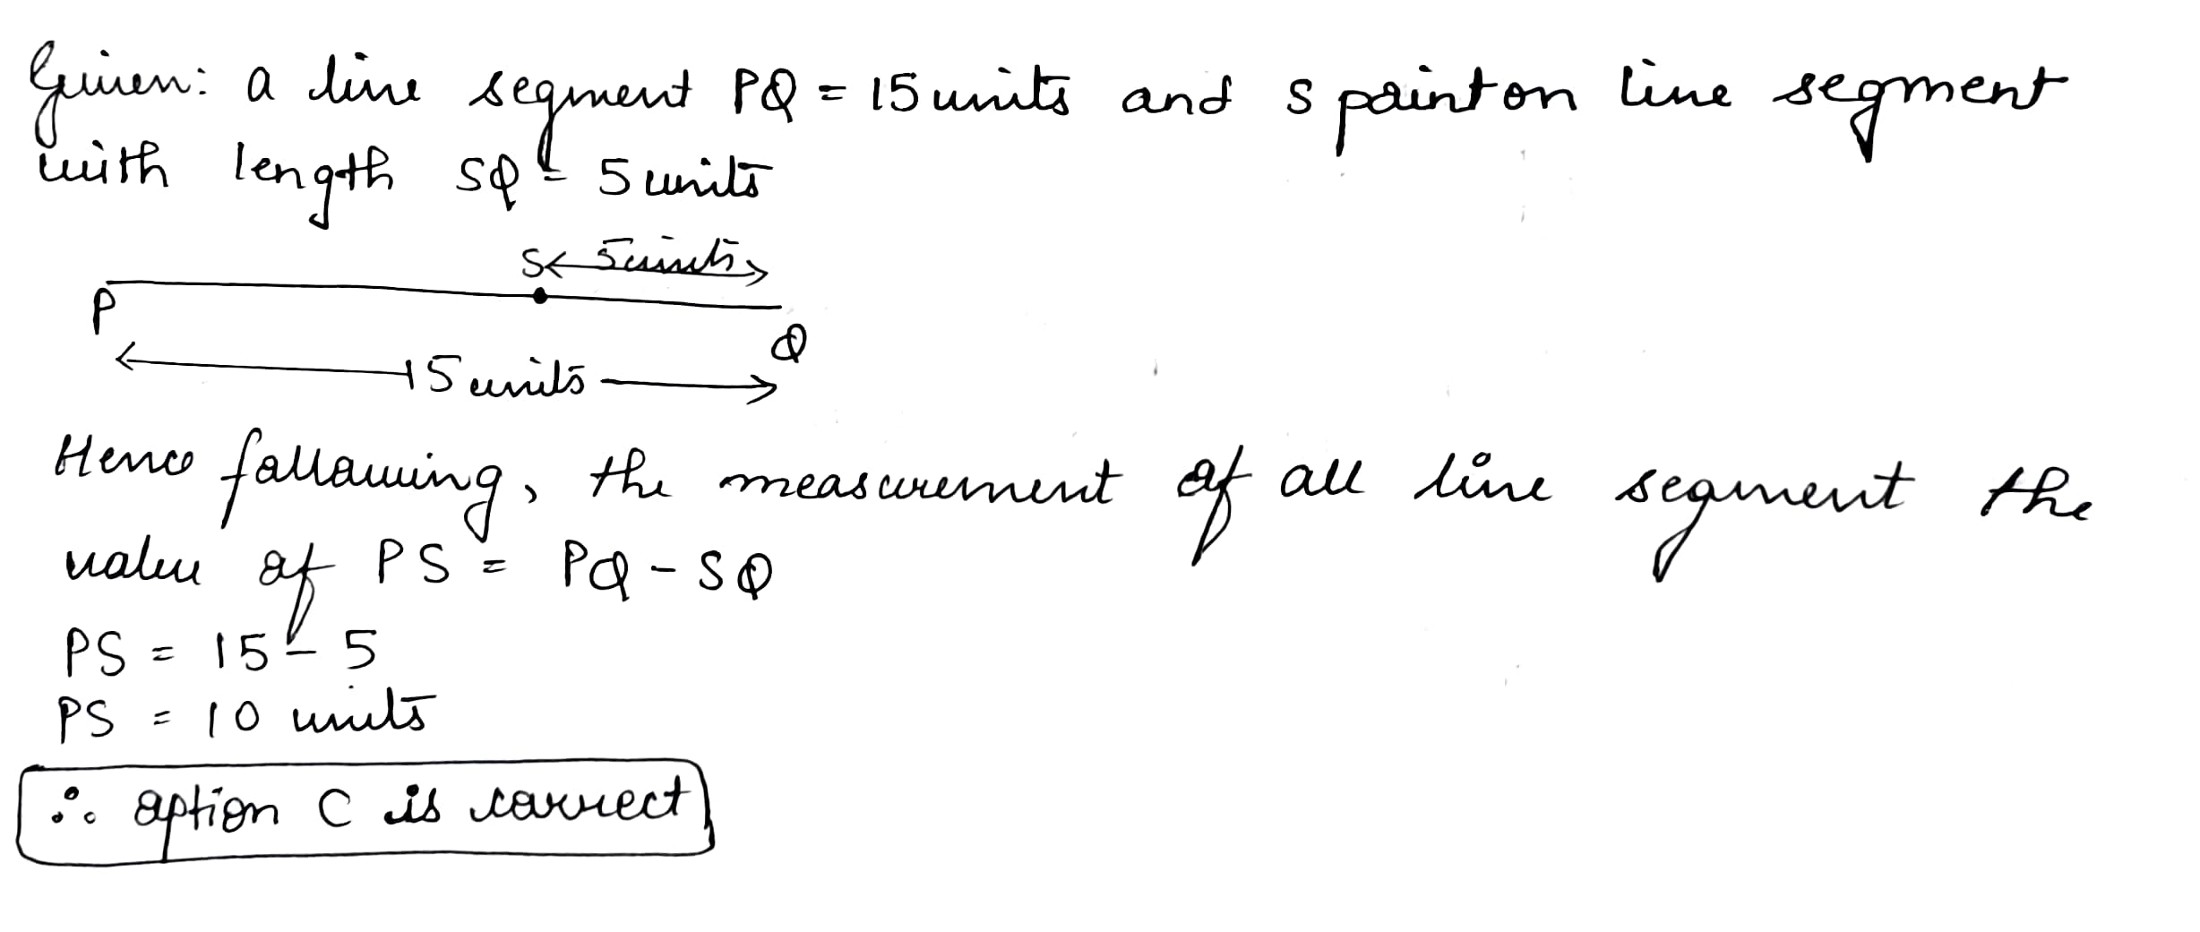 Given: a line segment PQ = 15 units and S point on line segment
with length SQ = 5 units
S 5 units
P
Q
15 units
Hence following, the measurement of all line segment the
value of PS = PQ - SQ
PS = 15 - 5
PS = 10 units
∴ option C is correct